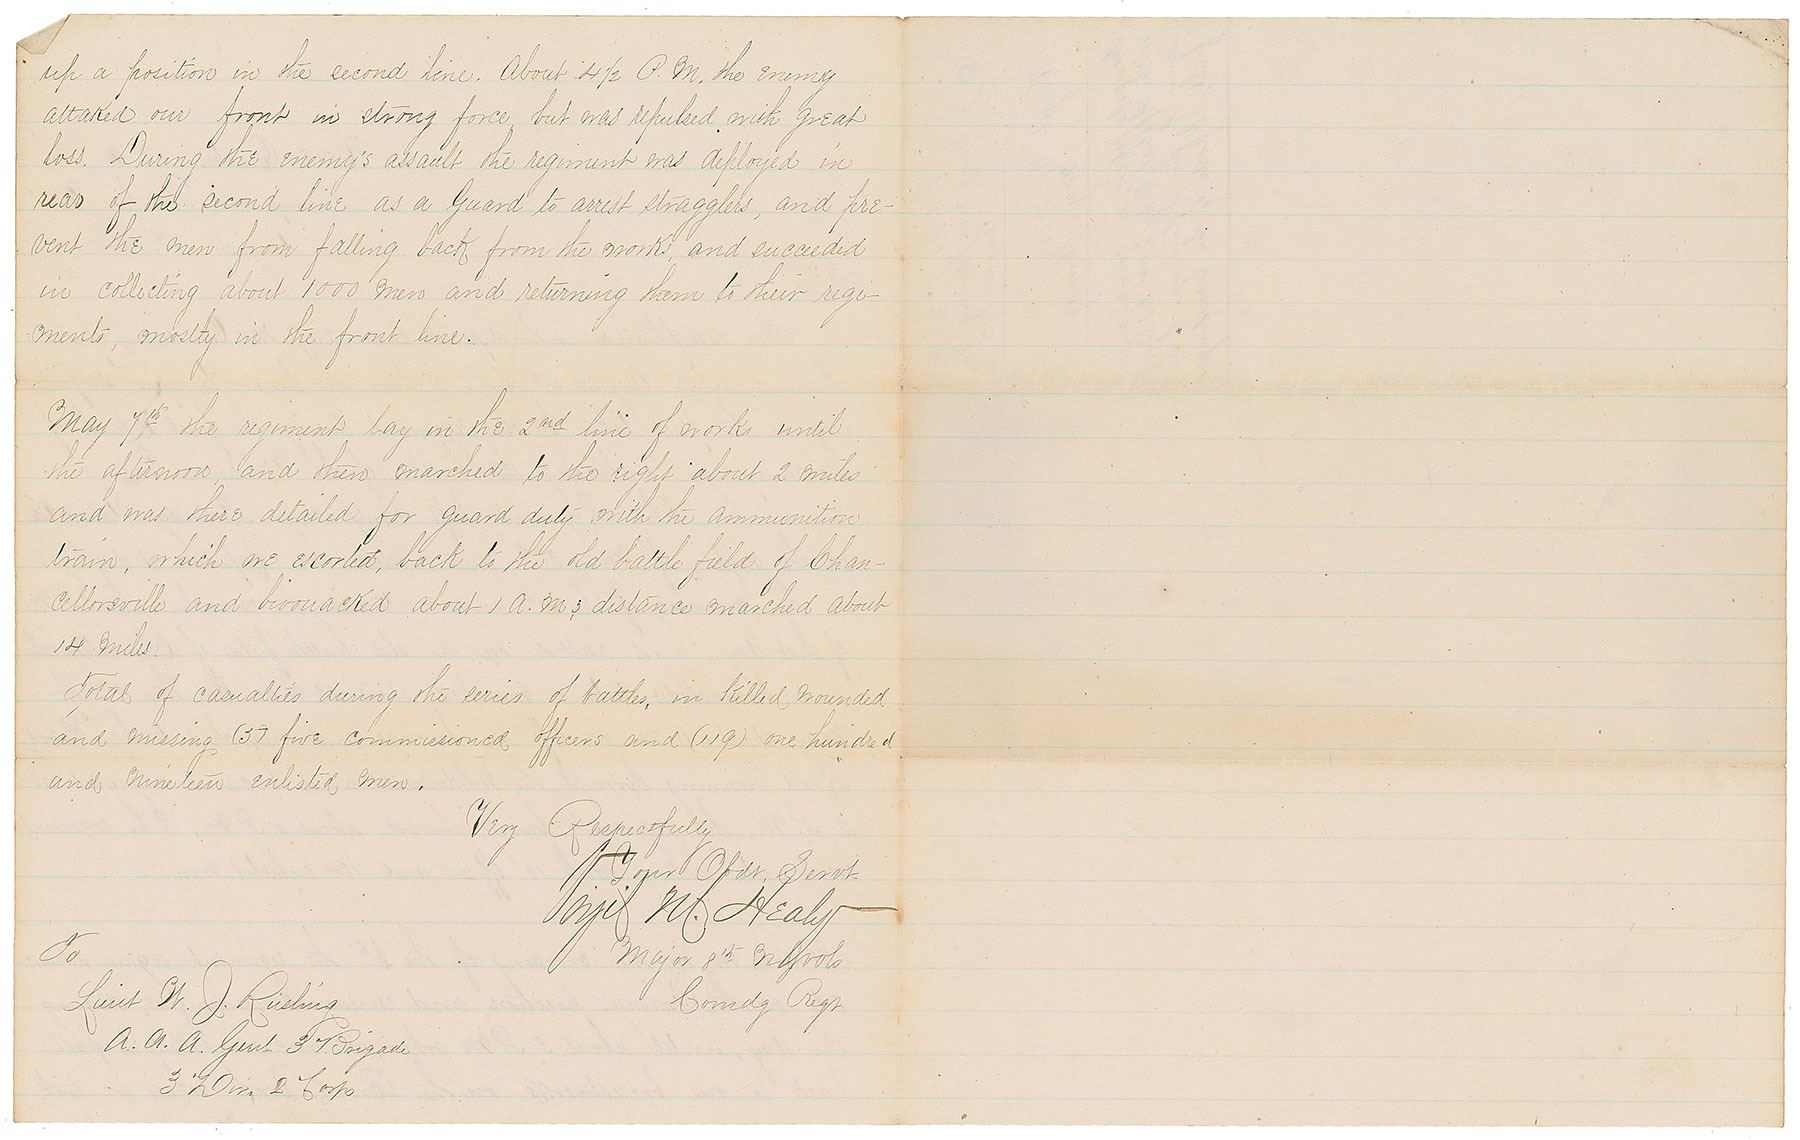 up a position in the second line. About 4½ P. M. the enemy
attaked our front in strong force, but was repulsed with great
loss. During the enemy's assault the regiment was deployed in
rear of the second line as a Guard to arrest stragglers, and pre-
vent the men from falling back from the works, and succeeded
in collecting about 1000 men and returning them to their regi-
ments, mostly in the front line.
May 7th the regiment lay in the 2nd line of works until
the afternoon, and then marched to the right about 2 miles
and was there detailed for guard duty with the ammunition
train, which we escorted, back to the old battle field of Chan-
cellorsville and bivouacked about 1 A. M; distance marched about
14 miles.
Total of casualties during the series of battles, in killed, wounded
and missing (5) five commissioned officers and (119) one hundred
and nineteen enlisted men.
Very Respectfully
Your Obdt. Servt.
Virgil M. Healy
Major 8th NJ Vols
Comdg Regt
To
Lieut W. J. Rusling
A. A. A. Genl 3" Brigade
3" Div. 2 Corps